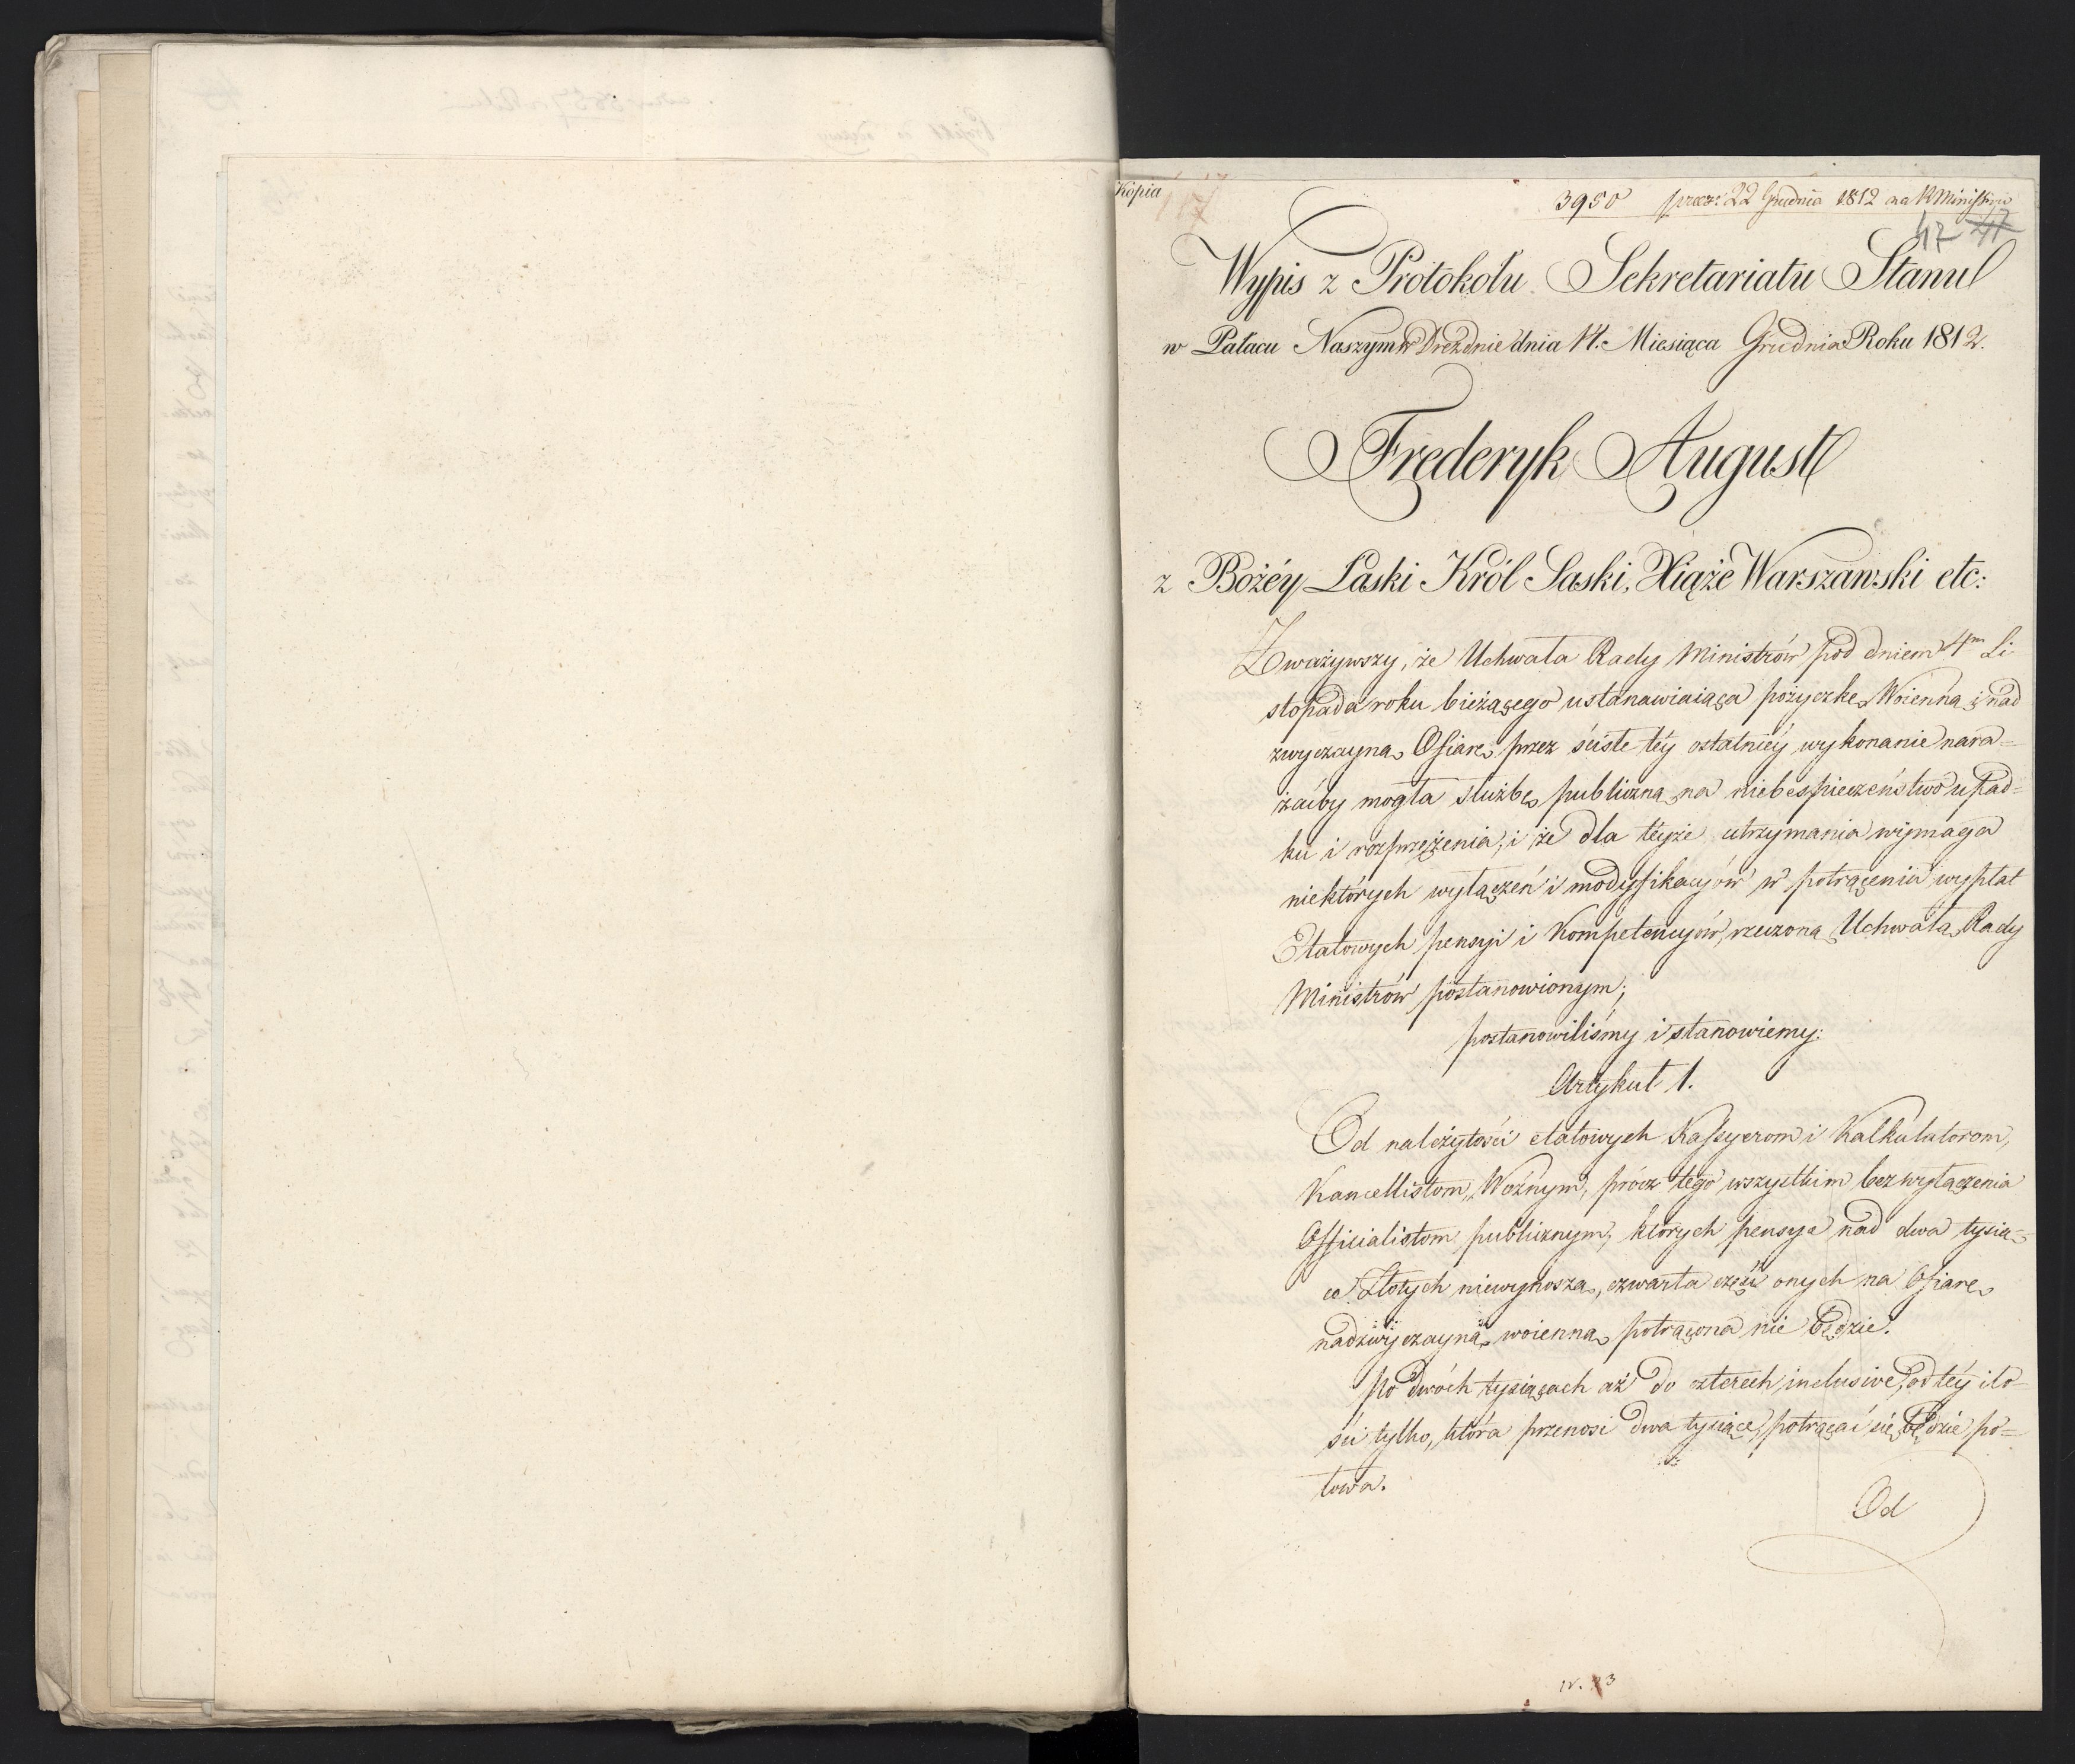 Kopia
117
3950 praes: 22 Grudnia 1812 na R Ministrów
47 47
Wypis z Protokołu Sekretariatu Stanu
w Pałacu Naszym w Dreźdnie dnia 14. Miesiąca Grudnia Roku 1812.
Frederyk August
z Bożéy Łaski Król Saski, Xiąże Warszawski etc:
Zważywszy, że Uchwała Rady Ministrów pod dniem 4m Li-
stopada roku bieżącego ustanawiaiąca pożyczkę Woienną i nad
zwyczayną Ofiarę przez ściste téy ostatniéy wykonanie nara=
żaćby mogła służbę publiczną na niebespieczeństwo upad=
ku i rozprzężenia, i że dla teyże utrzymania wymaga
niektórych wyłączeń i modyfikacyów w potrącenia wypłat
Etatowych pensyi i Kompetencyów, rzeczoną Uchwałą Rady
Ministrów postanowionym;
postanowiliśmy i stanowiemy:
Artykuł 1.
Od należytości etatowych Kassyerom i Kalkulatorom,
Kancellistom, Woźnym, prócz tego wszystkim bez wyłączenia
Officialistom publicznym, których pensya nad dwa tysią-
ce Złotych niewynoszą, czwarta część onych na Ofiarę
nadzwyczayną woienną potrącona nie będzie.
po dwóch tysiącach aż do czterech inclusive, od téy ilo=
ści tylko, która przenosi dwa tysiące, potrącać się będzie po=
łowa.
Od